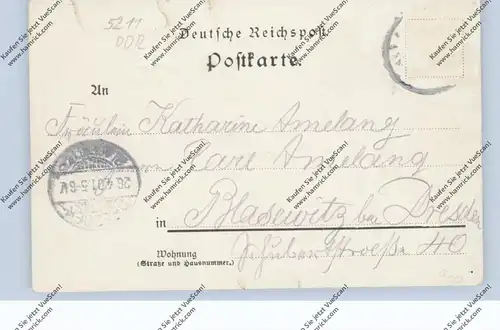 5211
DDR
Deutsche Reichspost
Postkarte.
An
Fräulein Katharine Amelang
Karl Amelang
in Blasewitz bei Dresden
Wohnung
(Straße und Hausnummer.)
40
26.4.01.5-6V
Kaufen Sie jetzt VueScan!
www.hamrick.com